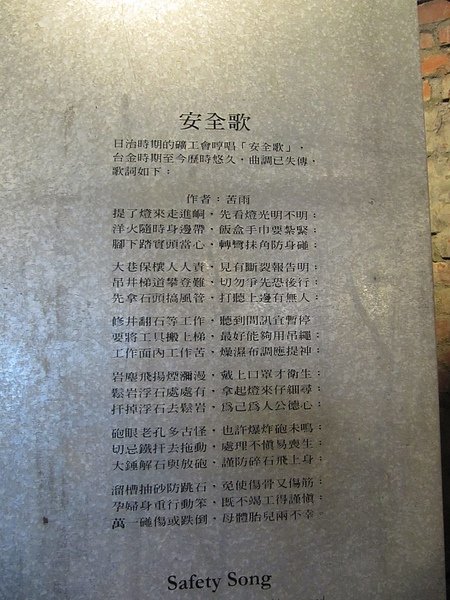 安全歌
日治時期的礦工會哼唱「安全歌」，
台金時期至今歷時悠久，曲調已失傳，
歌詞如下：
作者：苦雨
提了燈來走進峒，先看燈光明不明；
洋火隨時身邊帶，飯盒手巾要紮緊；
腳下踏實頭當心，轉彎抹角防身碰；
大巷保積人人責，見有斷裂報告明；
吊井梯道攀登難，切勿爭先恐後行；
先拿石頭搞風管，打聽上邊有無人；
修井翻石等工作，聽到問訊宜暫停
要將工具搬上梯，最好能夠用吊繩；
工作面內工作苦，燥濕布調應提神；
岩塵飛揚煙瀰漫，戴上口罩才衛生；
鬆岩浮石處處有，拿起燈來仔細尋；
扦掉浮石去鬆岩，為己為人公德心；
砲眼老孔多古怪，也許爆炸砲未鳴；
切忌鐵扦去拖動，處理不慎易喪生；
大錘解石與放砲，謹防碎石飛上身；
溜槽抽砂防跳石，免使傷骨又傷筋；
孕婦身重行動笨，既不竭工得謹慎；
萬一碰傷或跌倒，母體胎兒兩不幸。
Safety Song